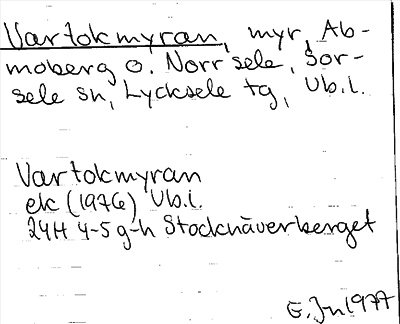 Vartokmyran, myr, Ab-
moberg o. Norrsele, Sor-
sele sn, Lycksele tg, Vb.l.
Vartokmyran
ek (1976) Vb.l.
24H 4-5 g-h Stocknäverberget
G. Jn 1977